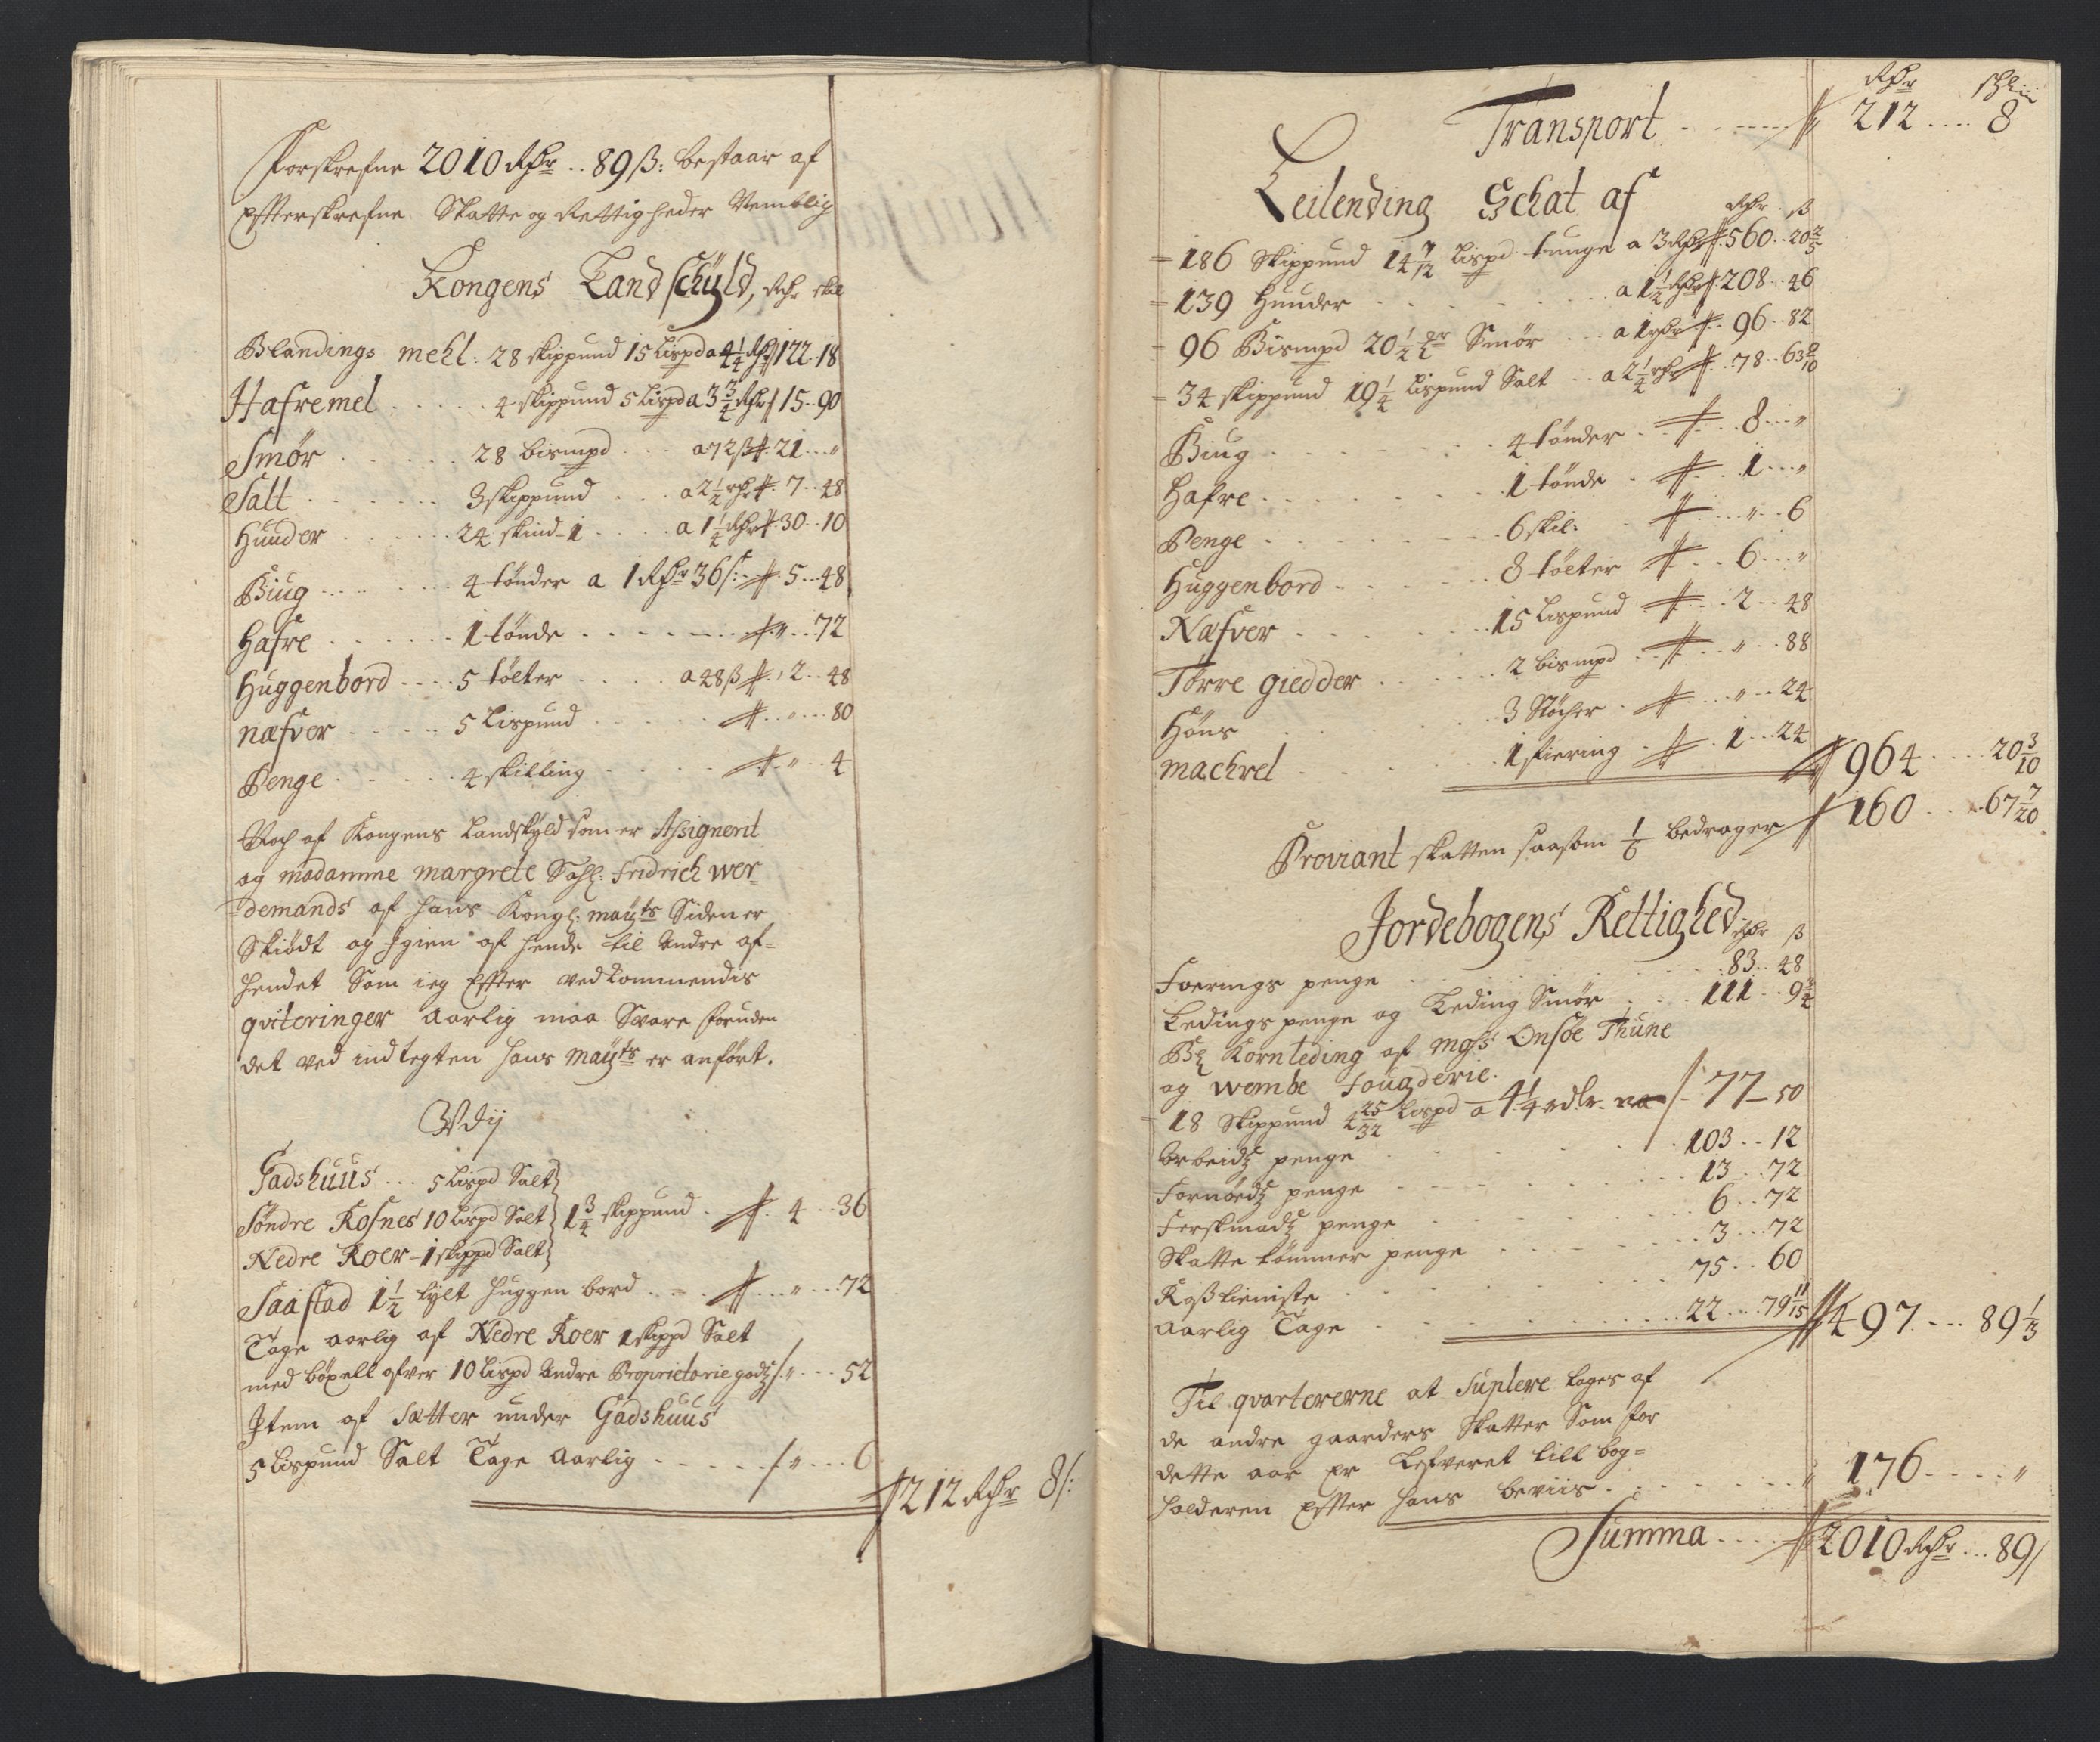 Forskrefne 2010 Rdr .. 89 ß: bestaar af
efterskrefne Skatte og Rettigheder Nemblig
Kongens Landschÿld, Rdr skil
Blandings mehl: 28 skippund 15 Lispd a 4 1/4 Rdr 122 .. 18
Hafremel . . . . . 4 skippund 5 Lispd a 3 3/4 Rdr 15 .. 90
Smør . . . . . . 28 bismpd . . . a 72 ß 21 .. "
Salt . . . . . . 3 skippund . . . . a 2 1/2 rdr 7 .. 48
Huuder . . . . . 24 skind - 1 . . . . a 1 1/4 Rdr 30 .. 10
Biug . . . . . . 4 tønder a 1 Rdr 36 ß: 5 .. 48
Hafre . . . . . . 1 tønde . . . . . . . " .. 72
Huggenbord . . . . 5 tølter . . . . . a 48 ß 2 .. 48
næfver . . . . . 5 Lispund . . . . . " .. 80
Penge . . . . . 4 skilling . . . . . " .. 4
Noch af Kongens Landskyld som er Assignerit
og madamme margrete Sahl: Fridrich wer-
demands af hans Kongl: mayts Siden er
Skiødt og Igien af hende til Andre af-
hendet Som ieg Efter vedkommendis
qviteringer Aarlig maa Svare foruden
det ved indtegten hans Mayts er anført.
Udj
Gadshuus . . . 5 Lispd Salt
Søndre Kosnes 10 Lispd Salt 1 3/4 skippund . 4 .. 36
Nedre Koer - 1 skippd Salt
Saastad 1 1/2 tylt huggen bord . . . " .. 72
Tage aarlig af Nedre Koer 1 skippd Salt
med bøxell ofver 10 Lispd Andre Proprietarie godz " .. 52
Item af Sætter under Gadshuus
5 Lispund Salt Tage Aarlig . . . . . " ... 6
212 Rdr 8 ß:
Rdr schill
Transport . . . . . 212 .... 8
Leilending Schat af Rdr ß
186 Skippund 14 7/12 Lispd tunge a 3 Rdr 560 .. 20 2/5
139 Huuder . . . . . . . . a 1 1/2 Rdr 208 .. 46
96 Bismpd 20 1/2 mr Smør . . . a 1 rdr 96 .. 82
34 skippund 19 1/4 Lispund Salt . . a 2 1/4 rdr 78 .. 63 9/10
Biug . . . . . . . 4 tønder . . 8 ... "
Hafre . . . . . . . 1 tønde . . 1 ... "
Penge . . . . . . . 6 skil: . . " .. 6
Huggenbord . . . . . . 8 tølter . . 6 ... "
Næfver . . . . . . 15 Lispund . . 2 .. 48
Tørre giedder . . . . . 2 bismpd . . " .. 88
Høns . . . . . 3 Støcher . . " .. 24
machrel . . . . . 1 fiering . . 1 .. 24 964 .... 20 3/10
Proviant skatten saasom 1/6 bedrager 160 .... 67 7/20
Jordebogens Rettighed Rdr ß
Foerings penge . . . . . . . 83 .. 48
Ledings penge og Leding Smør . . . 111 .. 9 3/4
Bl Kornleding af Mofs Onsøe Thune
og wembe Fougderie.
18 Skippund 4 25/32 Lispd a 4 1/4 rdlr. 77 - 50
Arbeidz penge . . . . . . 103 .. 12
Fornødz penge . . . . . . 13 .. 72
Ferskmadz penge . . . . . . 6 .. 72
Skatte tømmer penge . . . . . 3 .. 72
Roßtieniste . . . . . . . 75 .. 60
Aarlig Tage . . . . . . . 22 ... 79 11/15 497 ... 89 1/3
Til qvartererne at Suplere tages af
de andre gaarders Skatter Som for
dette aar er Lefveret till bog-
holderen Efter hans beviis . . . . . . 176 .... "
Summa . . . . 2010 Rdr ... 89 ß